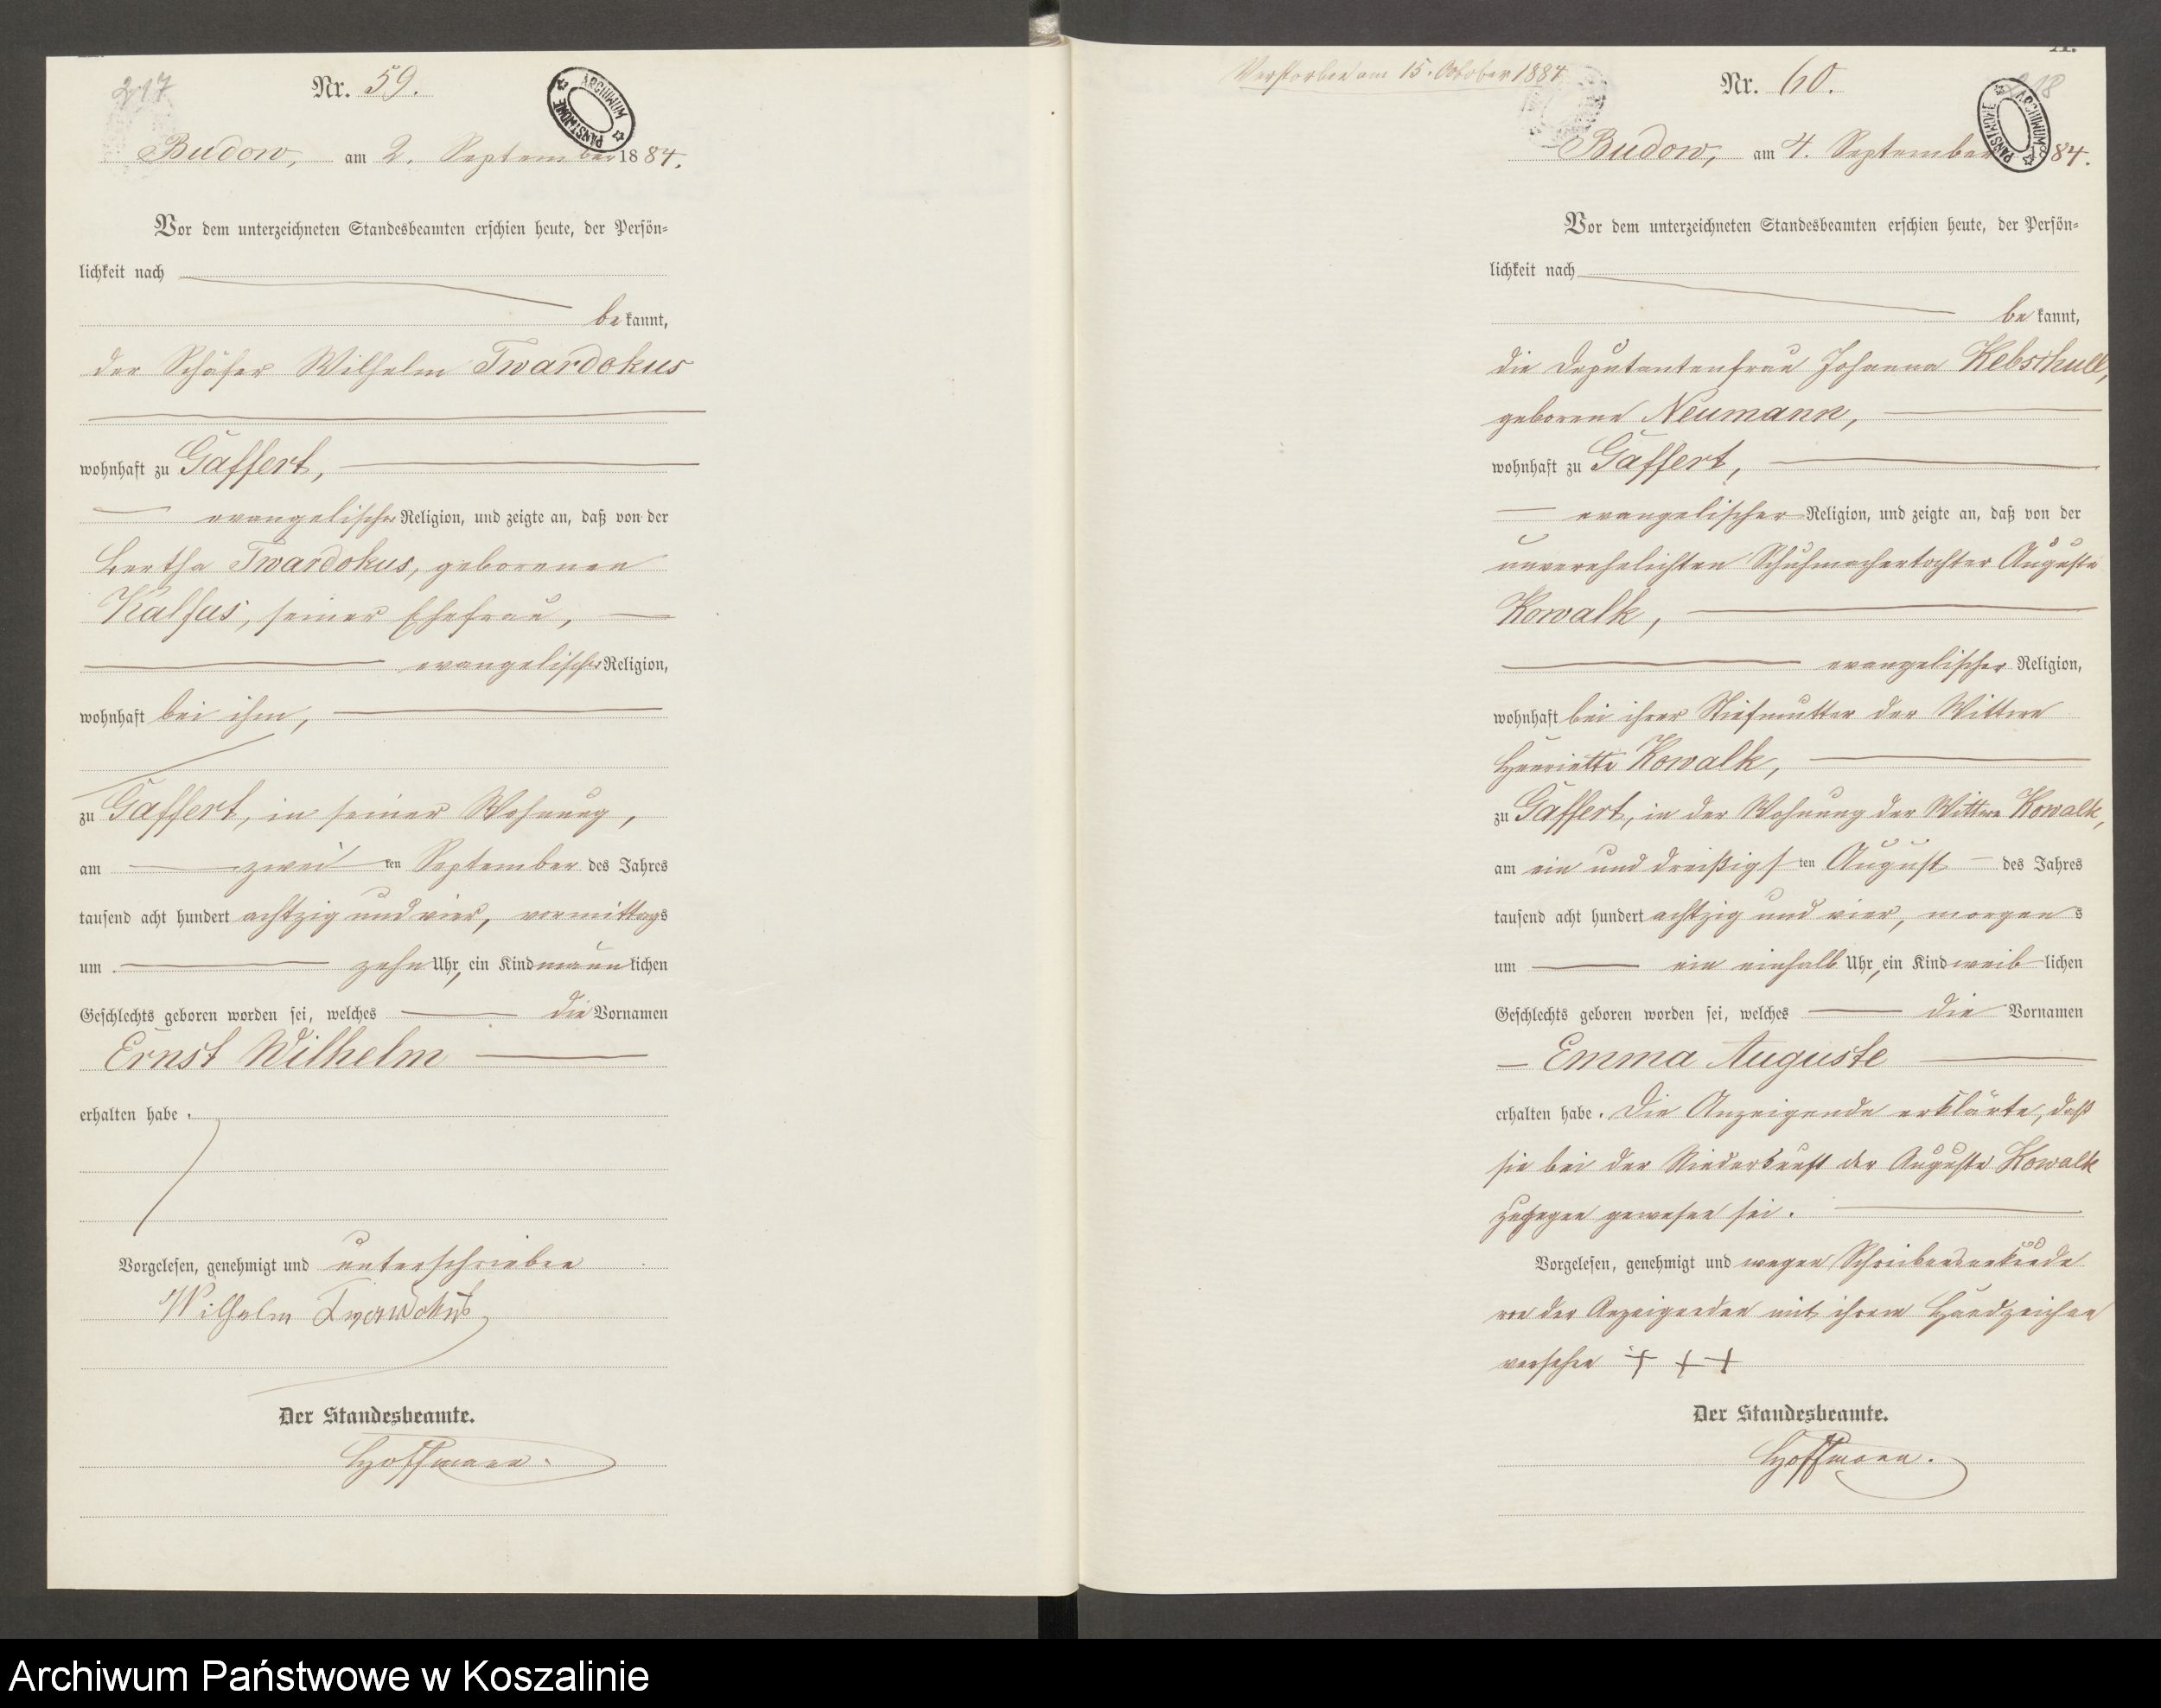 217
Nr. 59.
ARCHIWUM PAŃSTWOWE
Budow, am 2. September 1884.
Vor dem unterzeichneten Standesbeamten erschien heute, der Persön-
lichkeit nach
bekannt,
der Schäfer Wilhelm Twardokus
wohnhaft zu Gaffert,
evangelischer Religion, und zeigte an, daß von der
Bertha Twardokus, geborenen
Kalfus, seiner Ehefrau,
evangelischer Religion,
wohnhaft bei ihm,
zu Gaffert, in seiner Wohnung,
am zweiten September des Jahres
tausend acht hundert achtzig und vier, vormittags
um zehn Uhr, ein Kind männlichen
Geschlechts geboren worden sei, welches die Vornamen
Ernst Wilhelm
erhalten habe.
Vorgelesen, genehmigt und unterschrieben
Wilhelm Twardokus
Der Standesbeamte.
Hoffmann.
Verstorben am 15. October 1884
Nr. 60.
218
ARCHIWUM PAŃSTWOWE
Budow, am 4. September 1884.
Vor dem unterzeichneten Standesbeamten erschien heute, der Persön-
lichkeit nach
bekannt,
die Deputantenfrau Johanna Kebschull,
geborene Neumann,
wohnhaft zu Gaffert,
evangelischer Religion, und zeigte an, daß von der
unverehelichten Schuhmachertochter Auguste
Kowalk,
evangelischer Religion,
wohnhaft bei ihrer Stiefmutter der Wittwe
Henriette Kowalk,
zu Gaffert, in der Wohnung der Wittwe Kowalk,
am ein und dreißigsten August des Jahres
tausend acht hundert achtzig und vier, morgens
um ein einhalb Uhr, ein Kind weiblichen
Geschlechts geboren worden sei, welches die Vornamen
Emma Auguste
erhalten habe. Die Anzeigende erklärte, daß
sie bei der Niederkunft der Auguste Kowalk
zugegen gewesen sei.
Vorgelesen, genehmigt und wegen Schreibensunkunde
von der Anzeigenden mit ihrem Handzeichen
versehen + + +
Der Standesbeamte.
Hoffmann.
Archiwum Państwowe w Koszalinie